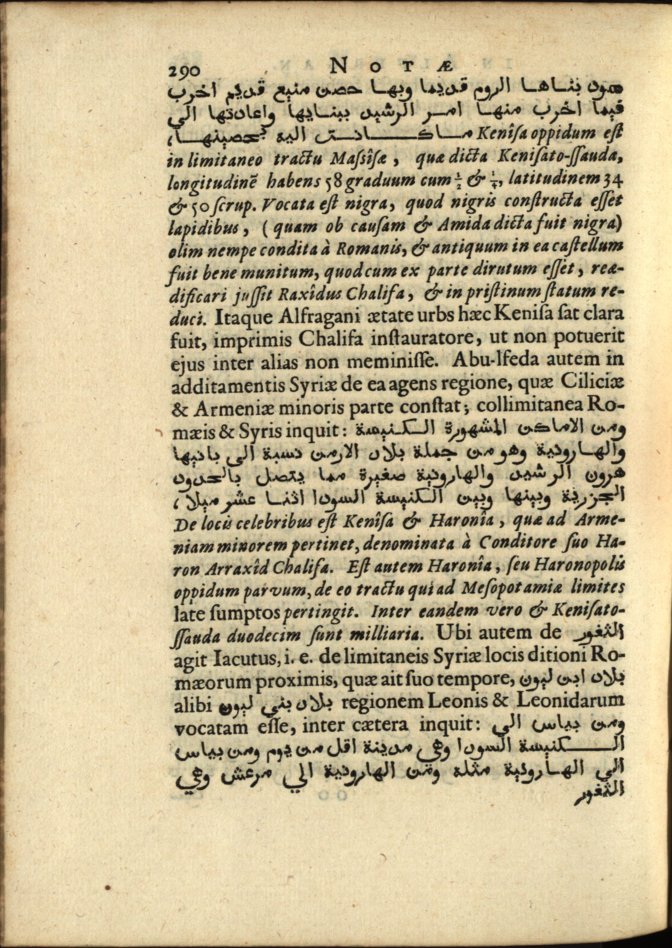 290 NOTÆ
سود بناها الروم قديما وبها حصن منيع قديم اخرب
فيما اخرب منها امر الرشيد ببنايها واعادتها الي
ما كانت اليه بتحصينها، Kenîsa oppidum est
in limitaneo tractu Massîsæ, quæ dicta Kenisato-ssauda,
longitudinē habens 58 graduum cum ½ & ¼, latitudinem 34
& 50 scrup. Vocata est nigra, quod nigris constructa esset
lapidibus, (quam ob causam & Amida dicta fuit nigra)
olim nempe condita à Romanis, & antiquum in ea castellum
fuit bene munitum, quod cum ex parte dirutum esset, reæ-
dificari jussit Raxîdus Chalifa, & in pristinum statum re-
duci. Itaque Alfragani ætate urbs hæc Kenisa sat clara
fuit, imprimis Chalifa instauratore, ut non potuerit
ejus inter alias non meminisse. Abu-lfeda autem in
additamentis Syriæ de ea agens regione, quæ Ciliciæ
& Armeniæ minoris parte constat; collimitanea Ro-
mæis & Syris inquit: ومن الاماكن المشهورة الكنيسة
والهارونية وهو من جملة بلاد الارمن نسبة الي بانيها
هرون الرشيد والهارونية صغيرة مما يتصل بالحدود
الجزرية وبينها وبين الكنيسة السودا اثنا عشر ميلا،
De locis celebribus est Kenîsa & Haronîa, quæ ad Arme-
niam minorem pertinet, denominata à Conditore suo Ha-
ron Arraxîd Chalifa. Est autem Haronîa, seu Haronopolis
oppidum parvum, de eo tractu qui ad Mesopotamiæ limites
late sumptos pertingit. Inter eandem vero & Kenisato-
ssauda duodecim sunt milliaria. Ubi autem de الثغور
agit Iacutus, i. e. de limitaneis Syriæ locis ditioni Ro-
mæorum proximis, quæ ait suo tempore, بلاد ابن ليون
alibi بلاد بني ليون regionem Leonis & Leonidarum
vocatam esse, inter cætera inquit: ومن بياس الي
الكنيسة السودا وهي مدينة اقل من يوم ومن بياس
الي الهارونية مثله ومن الهارونية الي مرعش وهي
الثغور